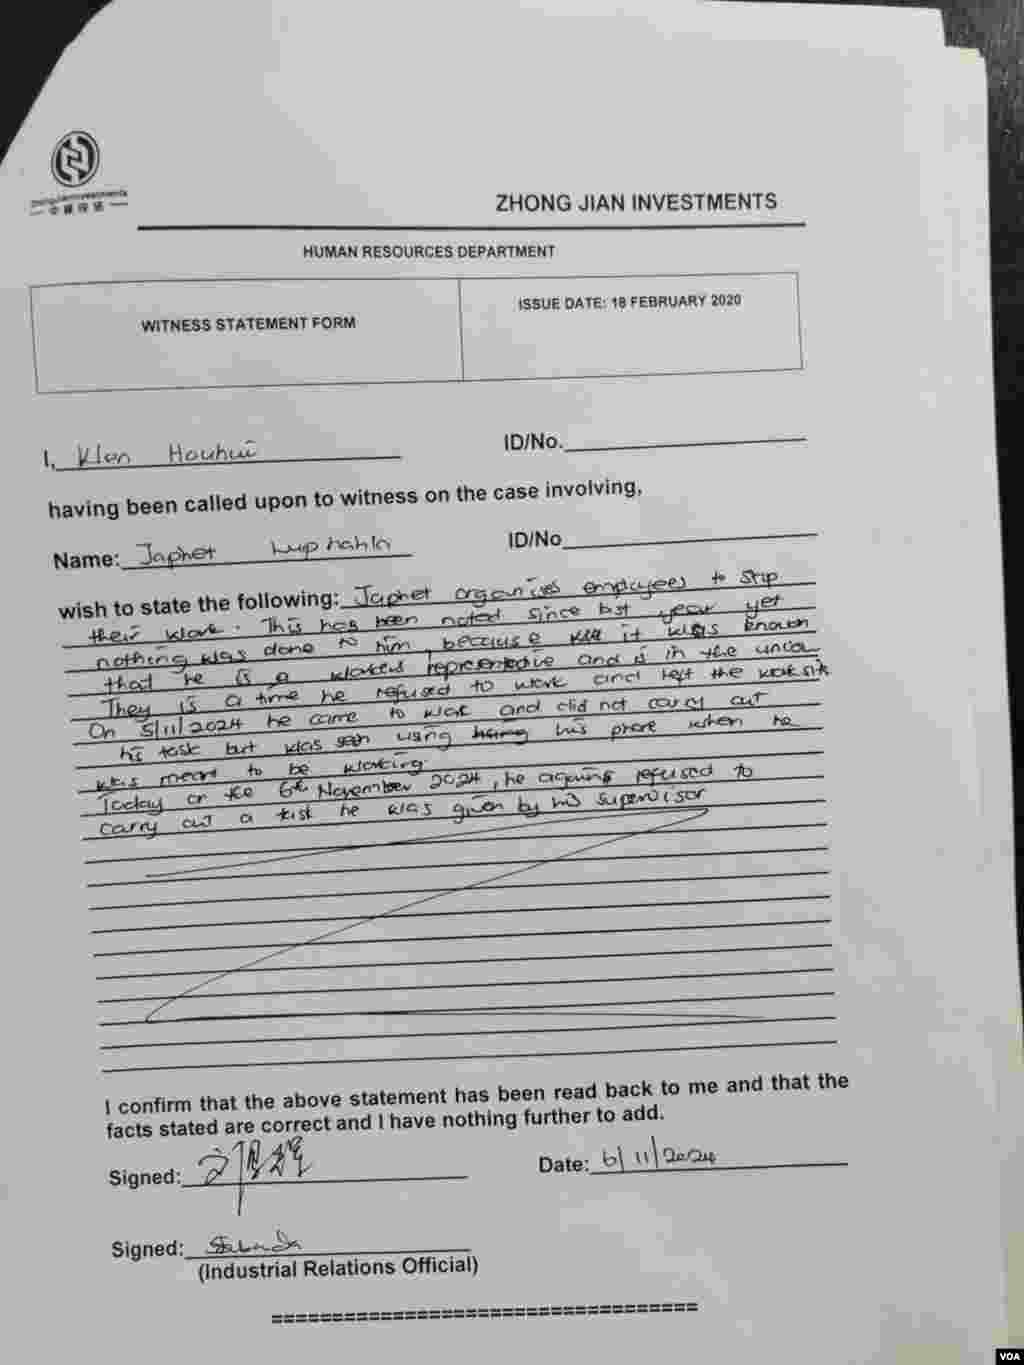 ZhongJianInvestments
ZHONG JIAN INVESTMENTS
HUMAN RESOURCES DEPARTMENT
WITNESS STATEMENT FORM
ISSUE DATE: 18 FEBRUARY 2020
I, Klan Houhui
ID/No.
having been called upon to witness on the case involving,
Name: Japhet
ID/No
wish to state the following: Japhet organises employees to stop
their work. This has been noted since last year yet
nothing was done to him, because it was known
that he is a workers representative and is in the union
They is a time he refused to work and left the work site
On 5/11/2024 he came to work and did not carry out
his task but was seen using his phone when he
was meant to be working.
Today on the 6th November 2024, he again refused to
carry out a task he was given by his supervisor
I confirm that the above statement has been read back to me and that the
facts stated are correct and I have nothing further to add.
Signed:
Date: 6/11/2024
Signed:
(Industrial Relations Official)
===================================
VOA